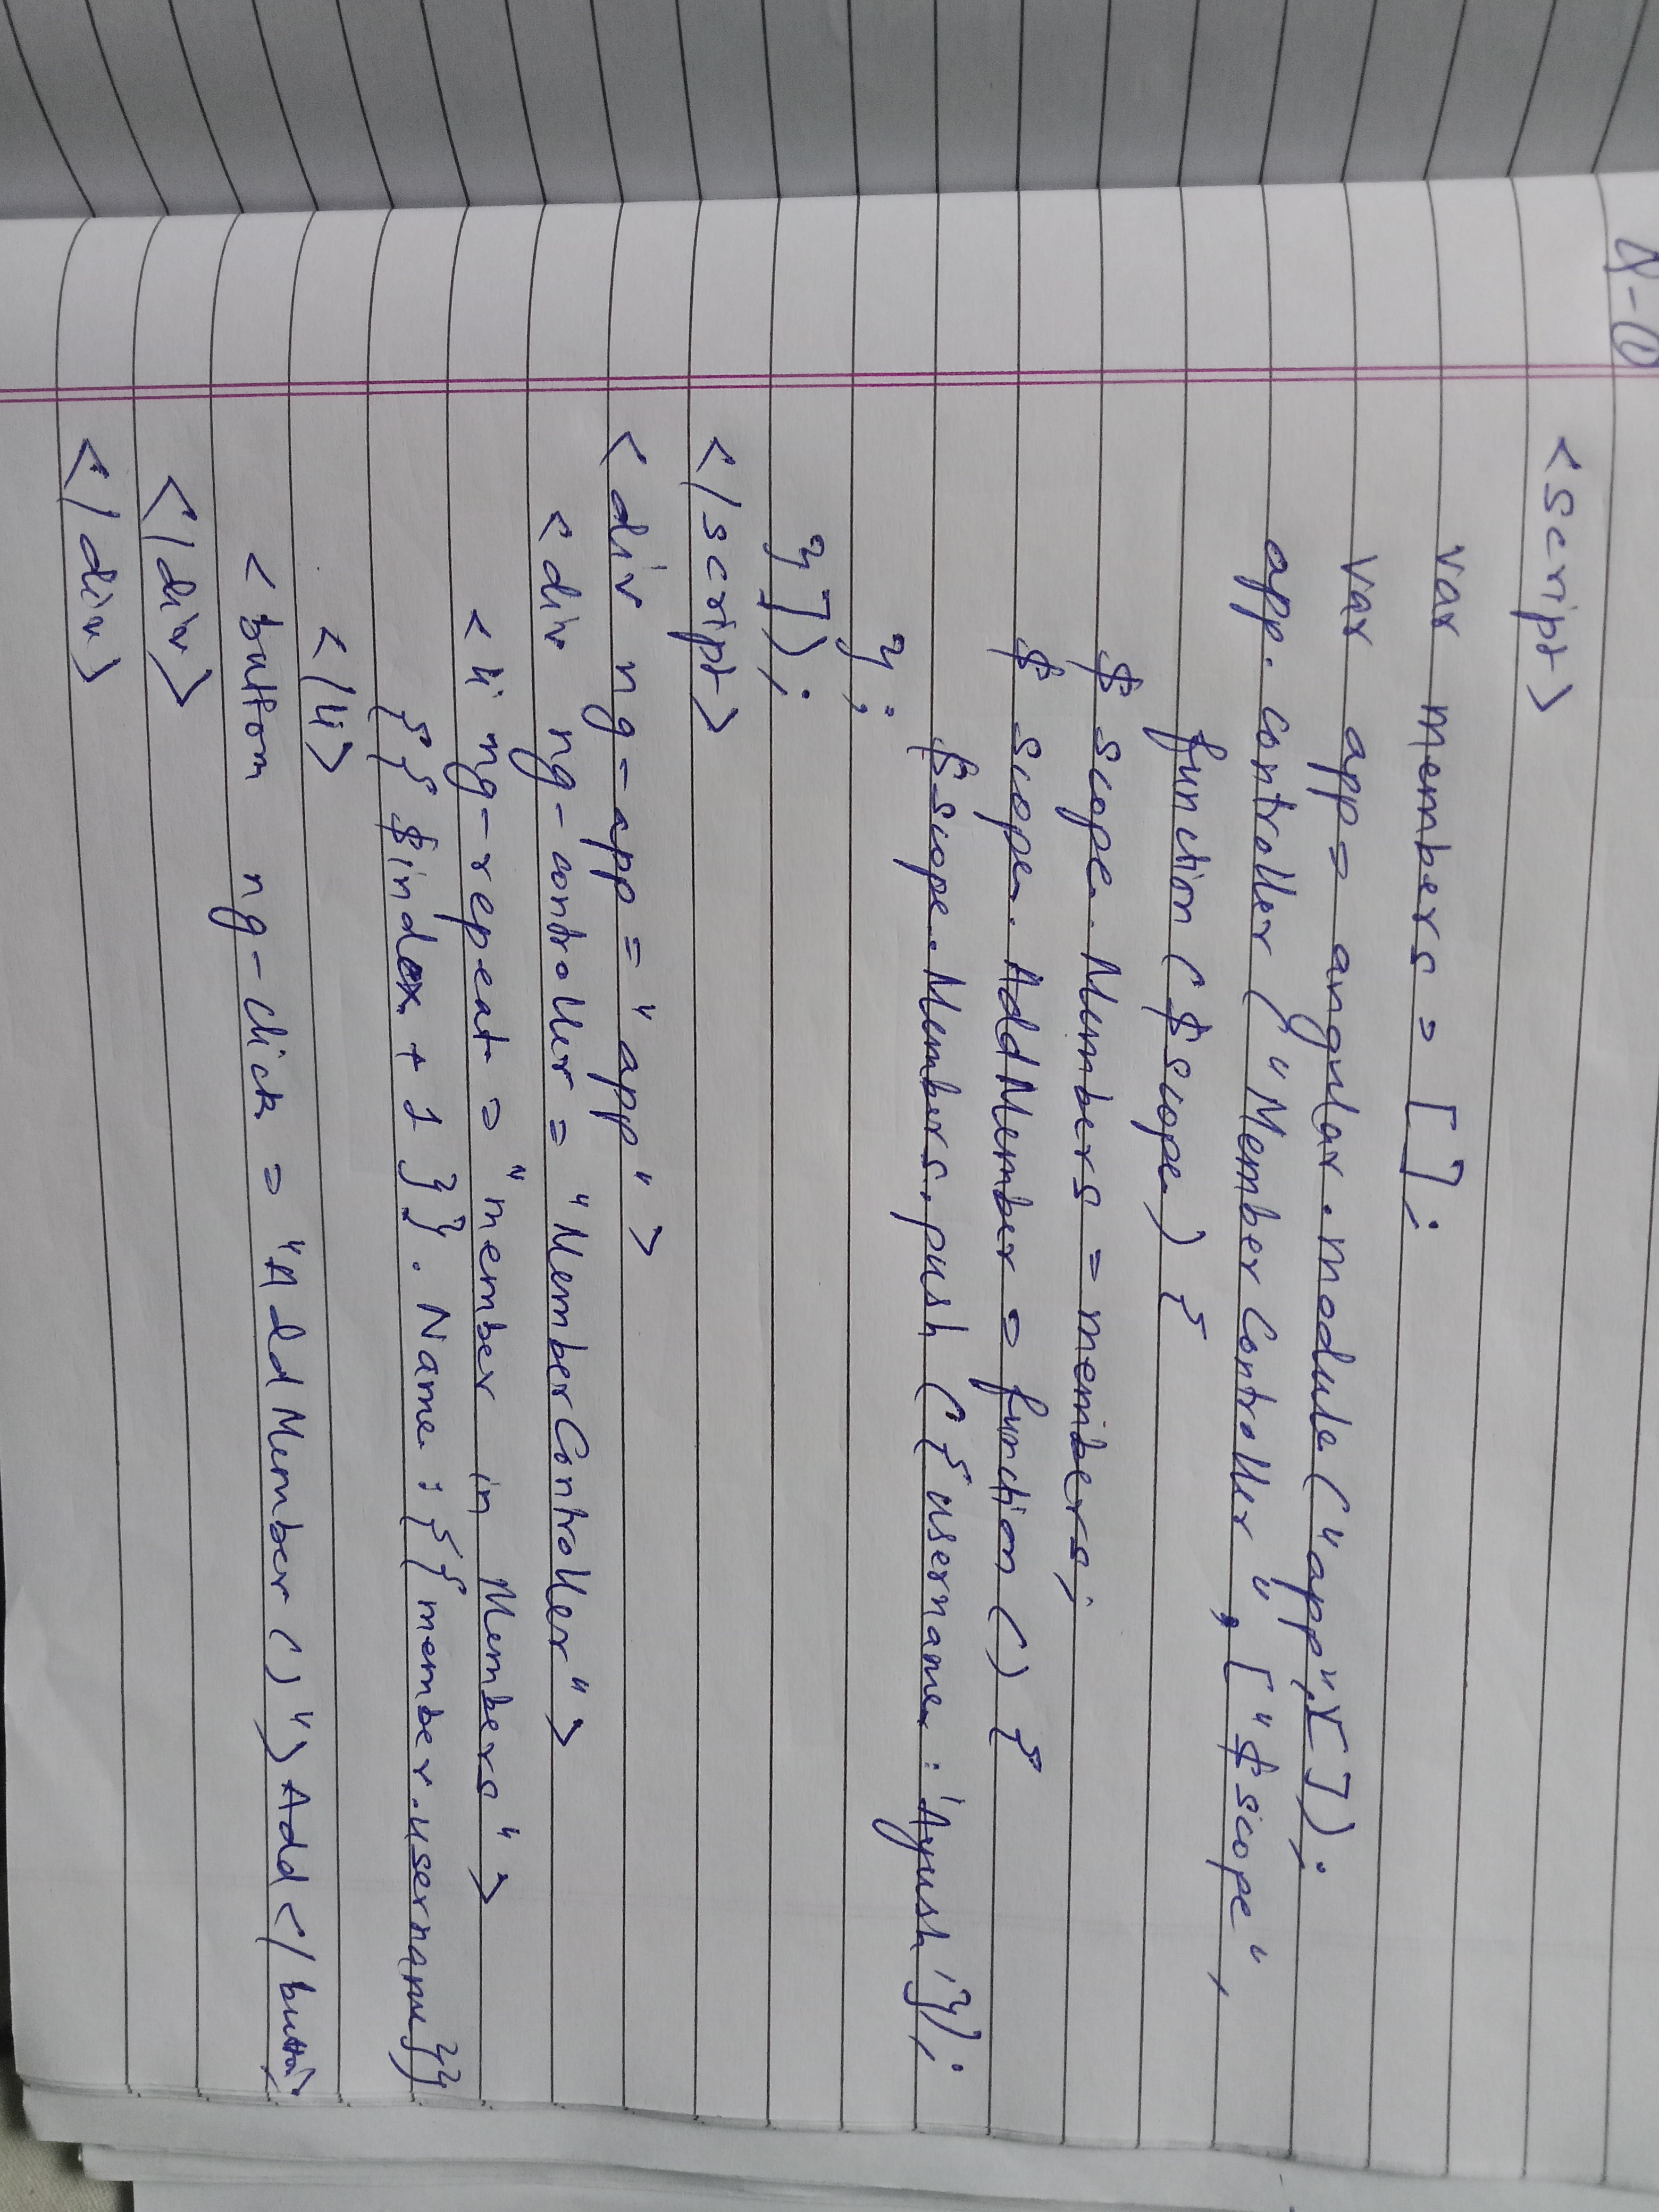 <script>
var members = [ ];
var app = angular.module("app", [ ]);
app.controller("MemberController", ["$scope",
function($scope) {
$scope.Members = members;
$scope.AddMember = function() {
$scope.Members.push({username: 'Ayush'});
};
}]);
</script>
<div ng-app = "app">
<div ng-controller = "MemberController">
<li ng-repeat = "member in Members">
{{ $index + 1 }}. Name : {{member.username}}
</li>
<button ng-click = "AddMember()">Add</button>
</div>
</div>